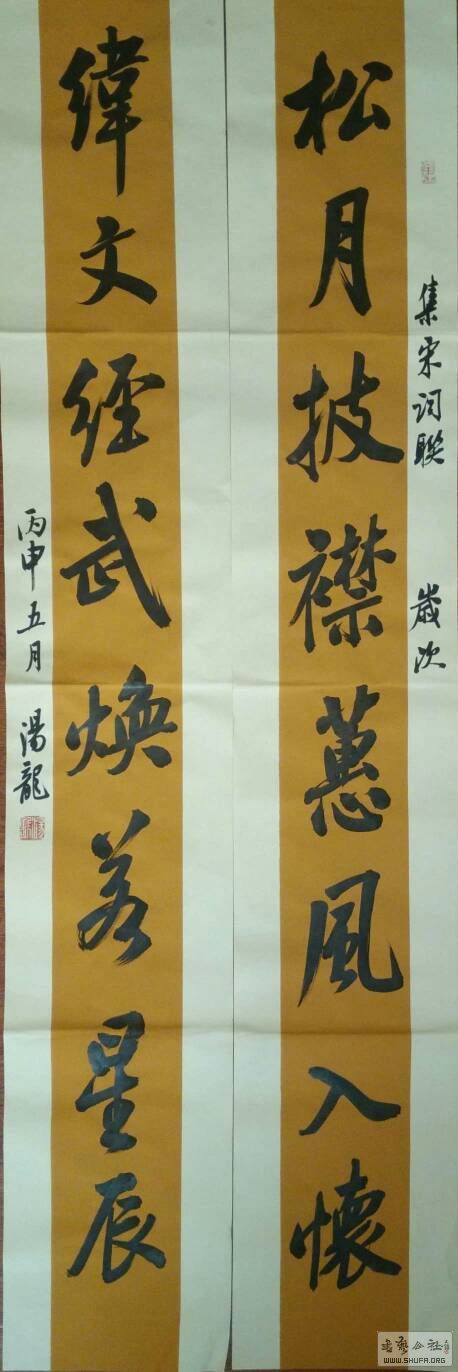 松月披襟蕙風入懷
集宋词联 歲次
緯文經武煥若星辰
丙申五月 湯龍
书艺公社
WWW.SHUFA.ORG